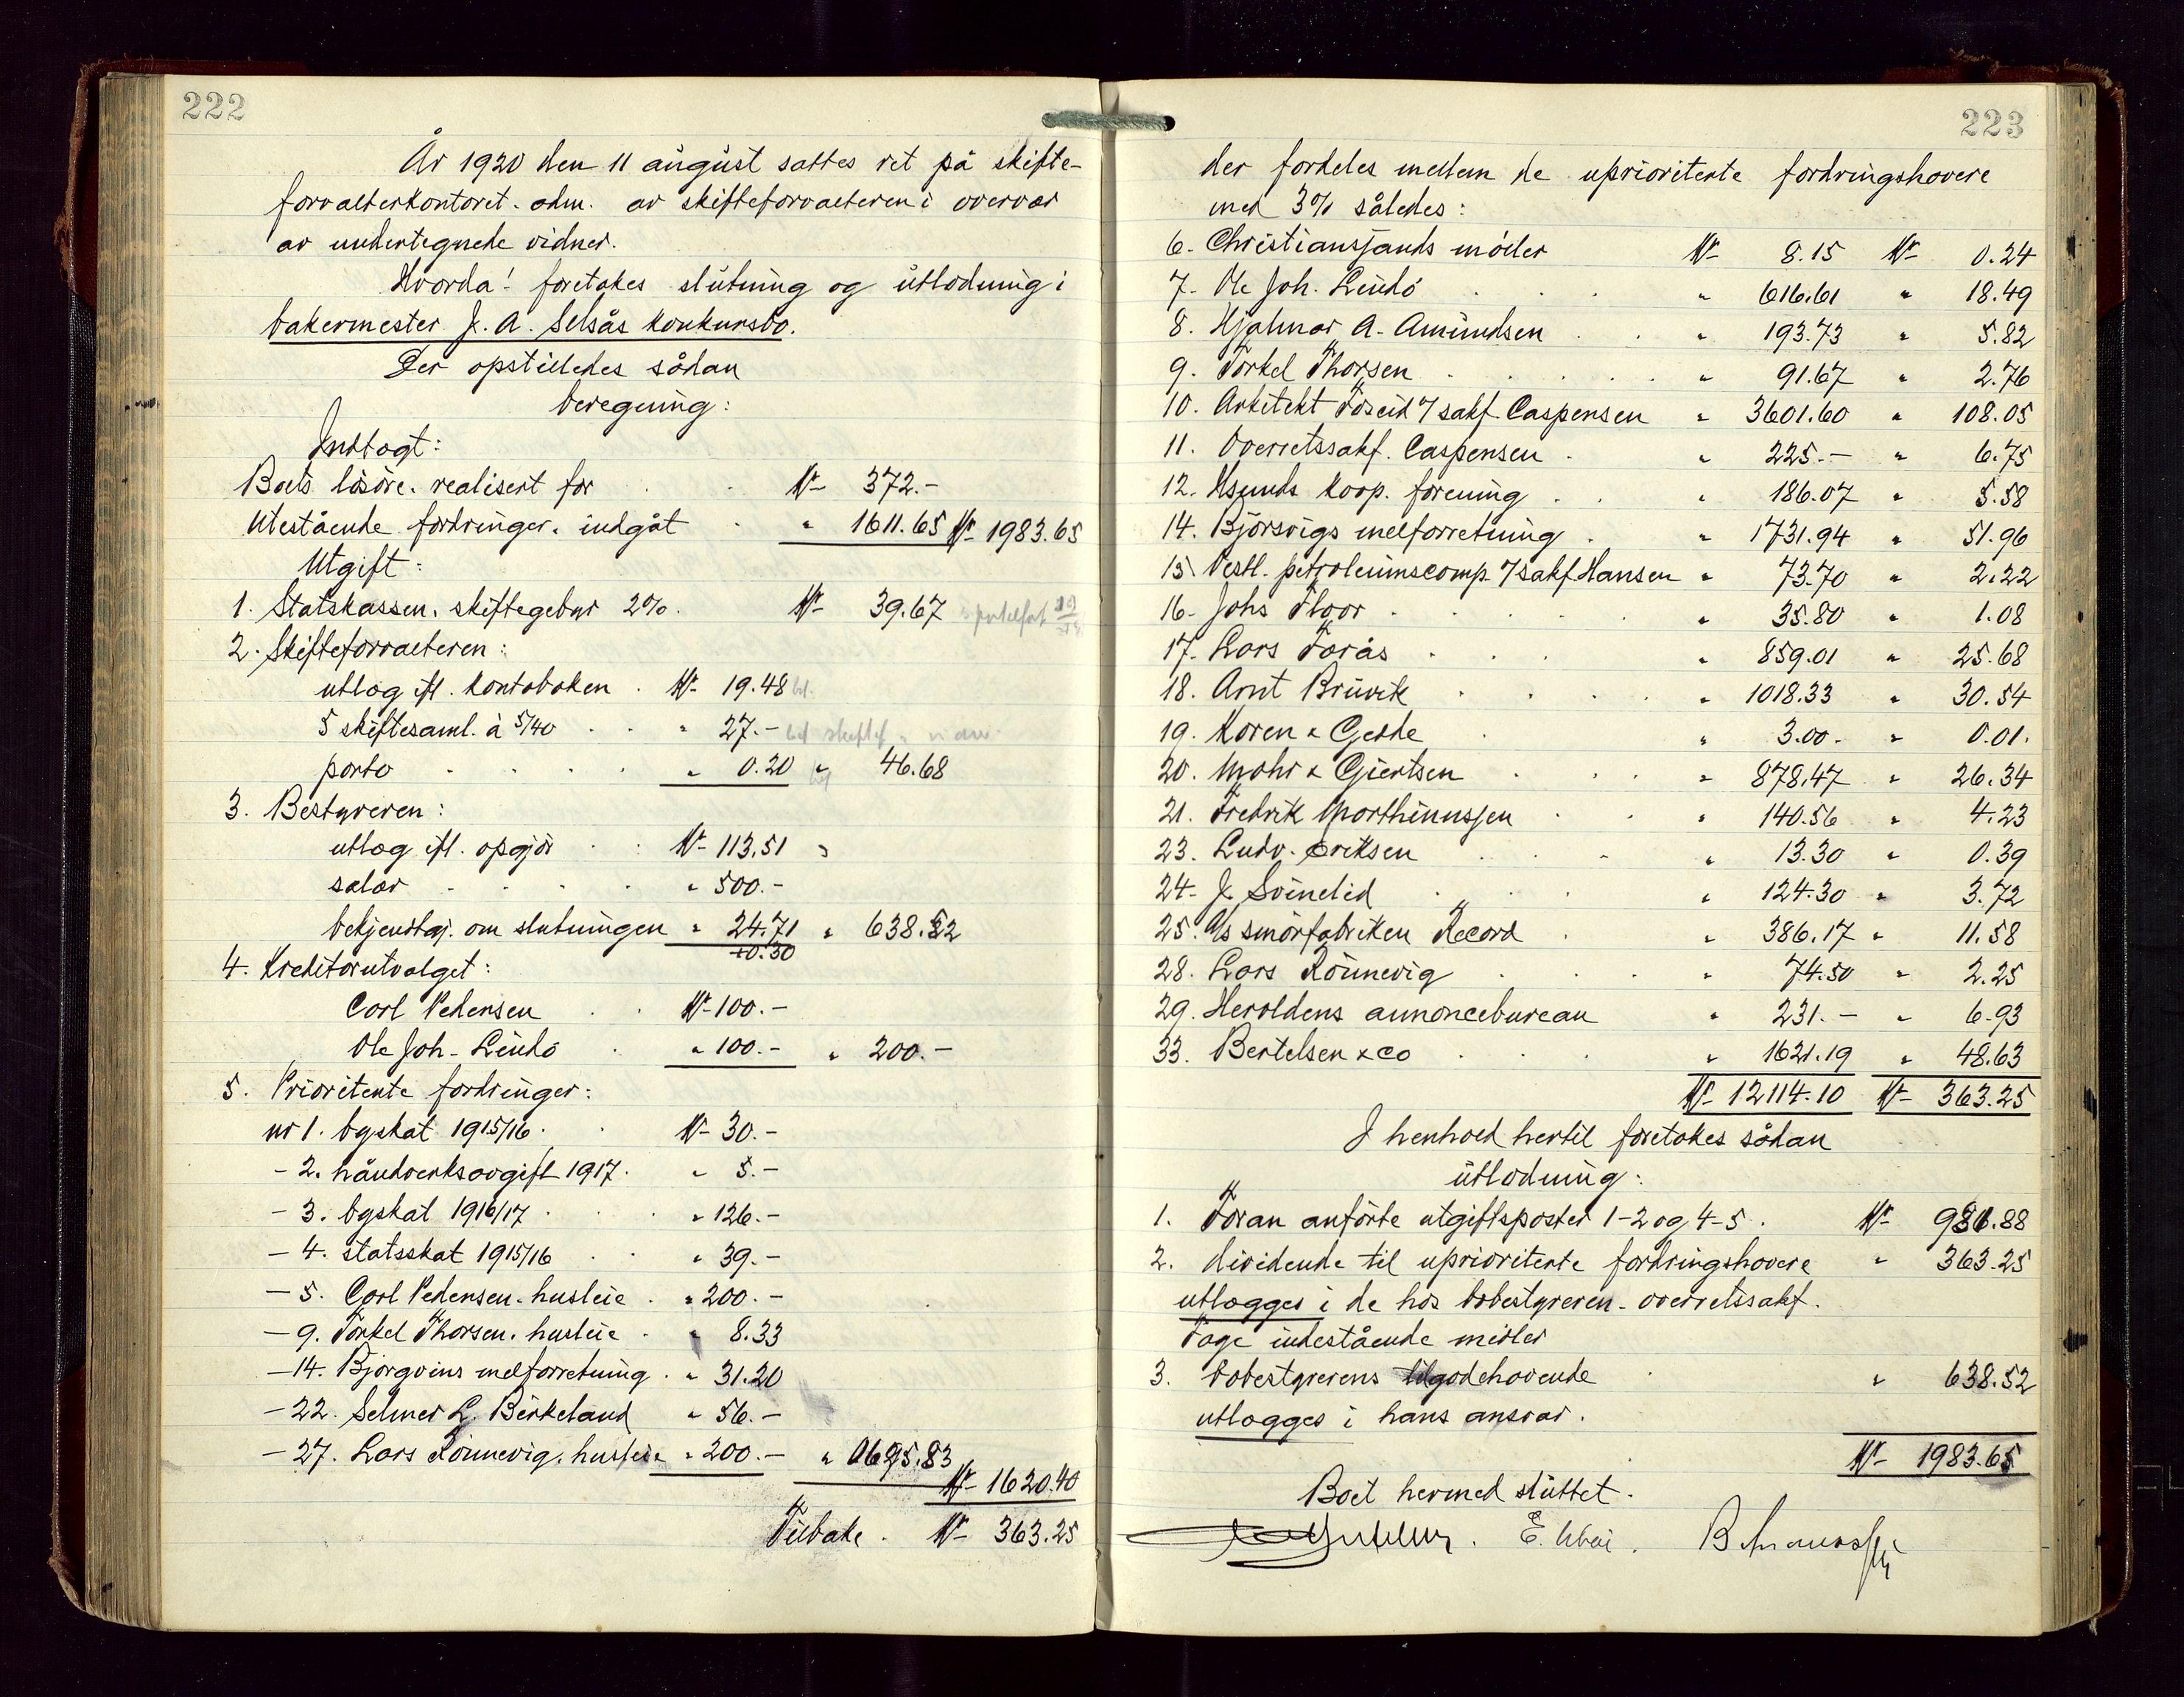 222
År 1920 den 11 august sattes ret på skifte-
forvalterkontoret. adm. av skifteforvalteren i overvær
av undertegnede vidner.
Hvorda! foretakes slutning og utlodning i
bakermester J. A. Selsås konkursbo.
Der opstilledes sådan
beregning:
Indtægt:
Boets løsøre. realisert for Kr 372.-
Utestående fordringer. indgåt " 1611.65 Kr 1983.65
Utgift:
1. Statskassen. skiftegebyr 2%. Kr 39.67
2. Skifteforvalteren:
utlæg ifl. kontoboken . Kr 19.48
5 skiftesaml. à 5/40 . . " 27.-
porto . . . . " 0.20 " 46.68
3. Bestyreren:
utlæg ifl. opgjør . . Kr 113.51
salær . . . . " 500.-
bekjendtgj. om slutningen " 24.71 " 638.52
+0.30
4. Kreditorutvalget:
Carl Pedersen . . Kr 100.-
Ole Joh. Lindø . " 100.- " 200.-
5. Prioriterte fordringer:
nr 1. byskat 1915/16 . . Kr 30.-
- 2. håndverksavgift 1917. " 5.-
- 3. byskat 1916/17 . . . " 126.-
- 4. statsskat 1915/16 . . " 39.-
- 5. Carl Pedersen. husleie . " 200.-
- 9. Torkel Thorsen. husleie . " 8.33
- 14. Bjørgvins melforretning . " 31.20
- 22. Selmer L. Birkeland " 56.-
- 27. Lars Rønnevig. husleie " 200.- " 695.83
Kr 1620.40
Tilbake . Kr 363.25
223
der fordeles mellem de uprioriterte fordringshavere
med 3% således:
6. Christianssands møller Kr 8.15 Kr 0.24
7. Ole Joh. Lindø . . . " 616.61 " 18.49
8. Hjalmar A. Amundsen . . " 193.73 " 5.82
9. Torkel Thorsen . . . . . " 91.67 " 2.76
10. Arkitekt Foseid v/ sakf. Caspersen " 3601.60 " 108.05
11. Overretssakf. Caspersen . " 225.- " 6.75
12. Hsunds koop. forening . . " 186.07 " 5.58
14. Bjørsvigs melforretning . " 1731.94 " 51.96
15. Vestl. petroleumscomp. v/ sakf. Hansen " 73.70 " 2.22
16. Johs Thor . . . . . " 35.80 " 1.08
17. Lars Torås . . . " 859.01 " 25.68
18. Arnt Bruvik . . . . " 1018.33 " 30.54
19. Koren & Gedde . " 3.00. " 0.01.
20. Mohr & Giertsen . . . " 878.47 " 26.34
21. Fredrik Morthinussen . . " 140.56 " 4.23
23. Ludv. Eriksen . . . " 13.30 " 0.39
24. J. Svindlid . . . " 124.30 " 3.72
25. A/s smørfabriken Record . " 386.17 " 11.58
28. Lars Rønnevig . . . " 74.50 " 2.25
29. Heroldens annoncebureau " 231.- " 6.93
33. Bertelsen & co . . . " 1621.19 " 48.63
Kr 12114.10 Kr 363.25
I henhold hertil foretakes sådan
utlodning:
1. Foran anførte utgiftsposter 1-2 og 4-5 . Kr 981.88
2. dividende til uprioriterte fordringshavere " 363.25
utlægges i de hos bobestyreren. overretssakf.
Tage indestående midler
3. bobestyrerens tilgodehavende " 638.52
utlægges i hans ansvar.
Kr 1983.65
Boet hermed sluttet.